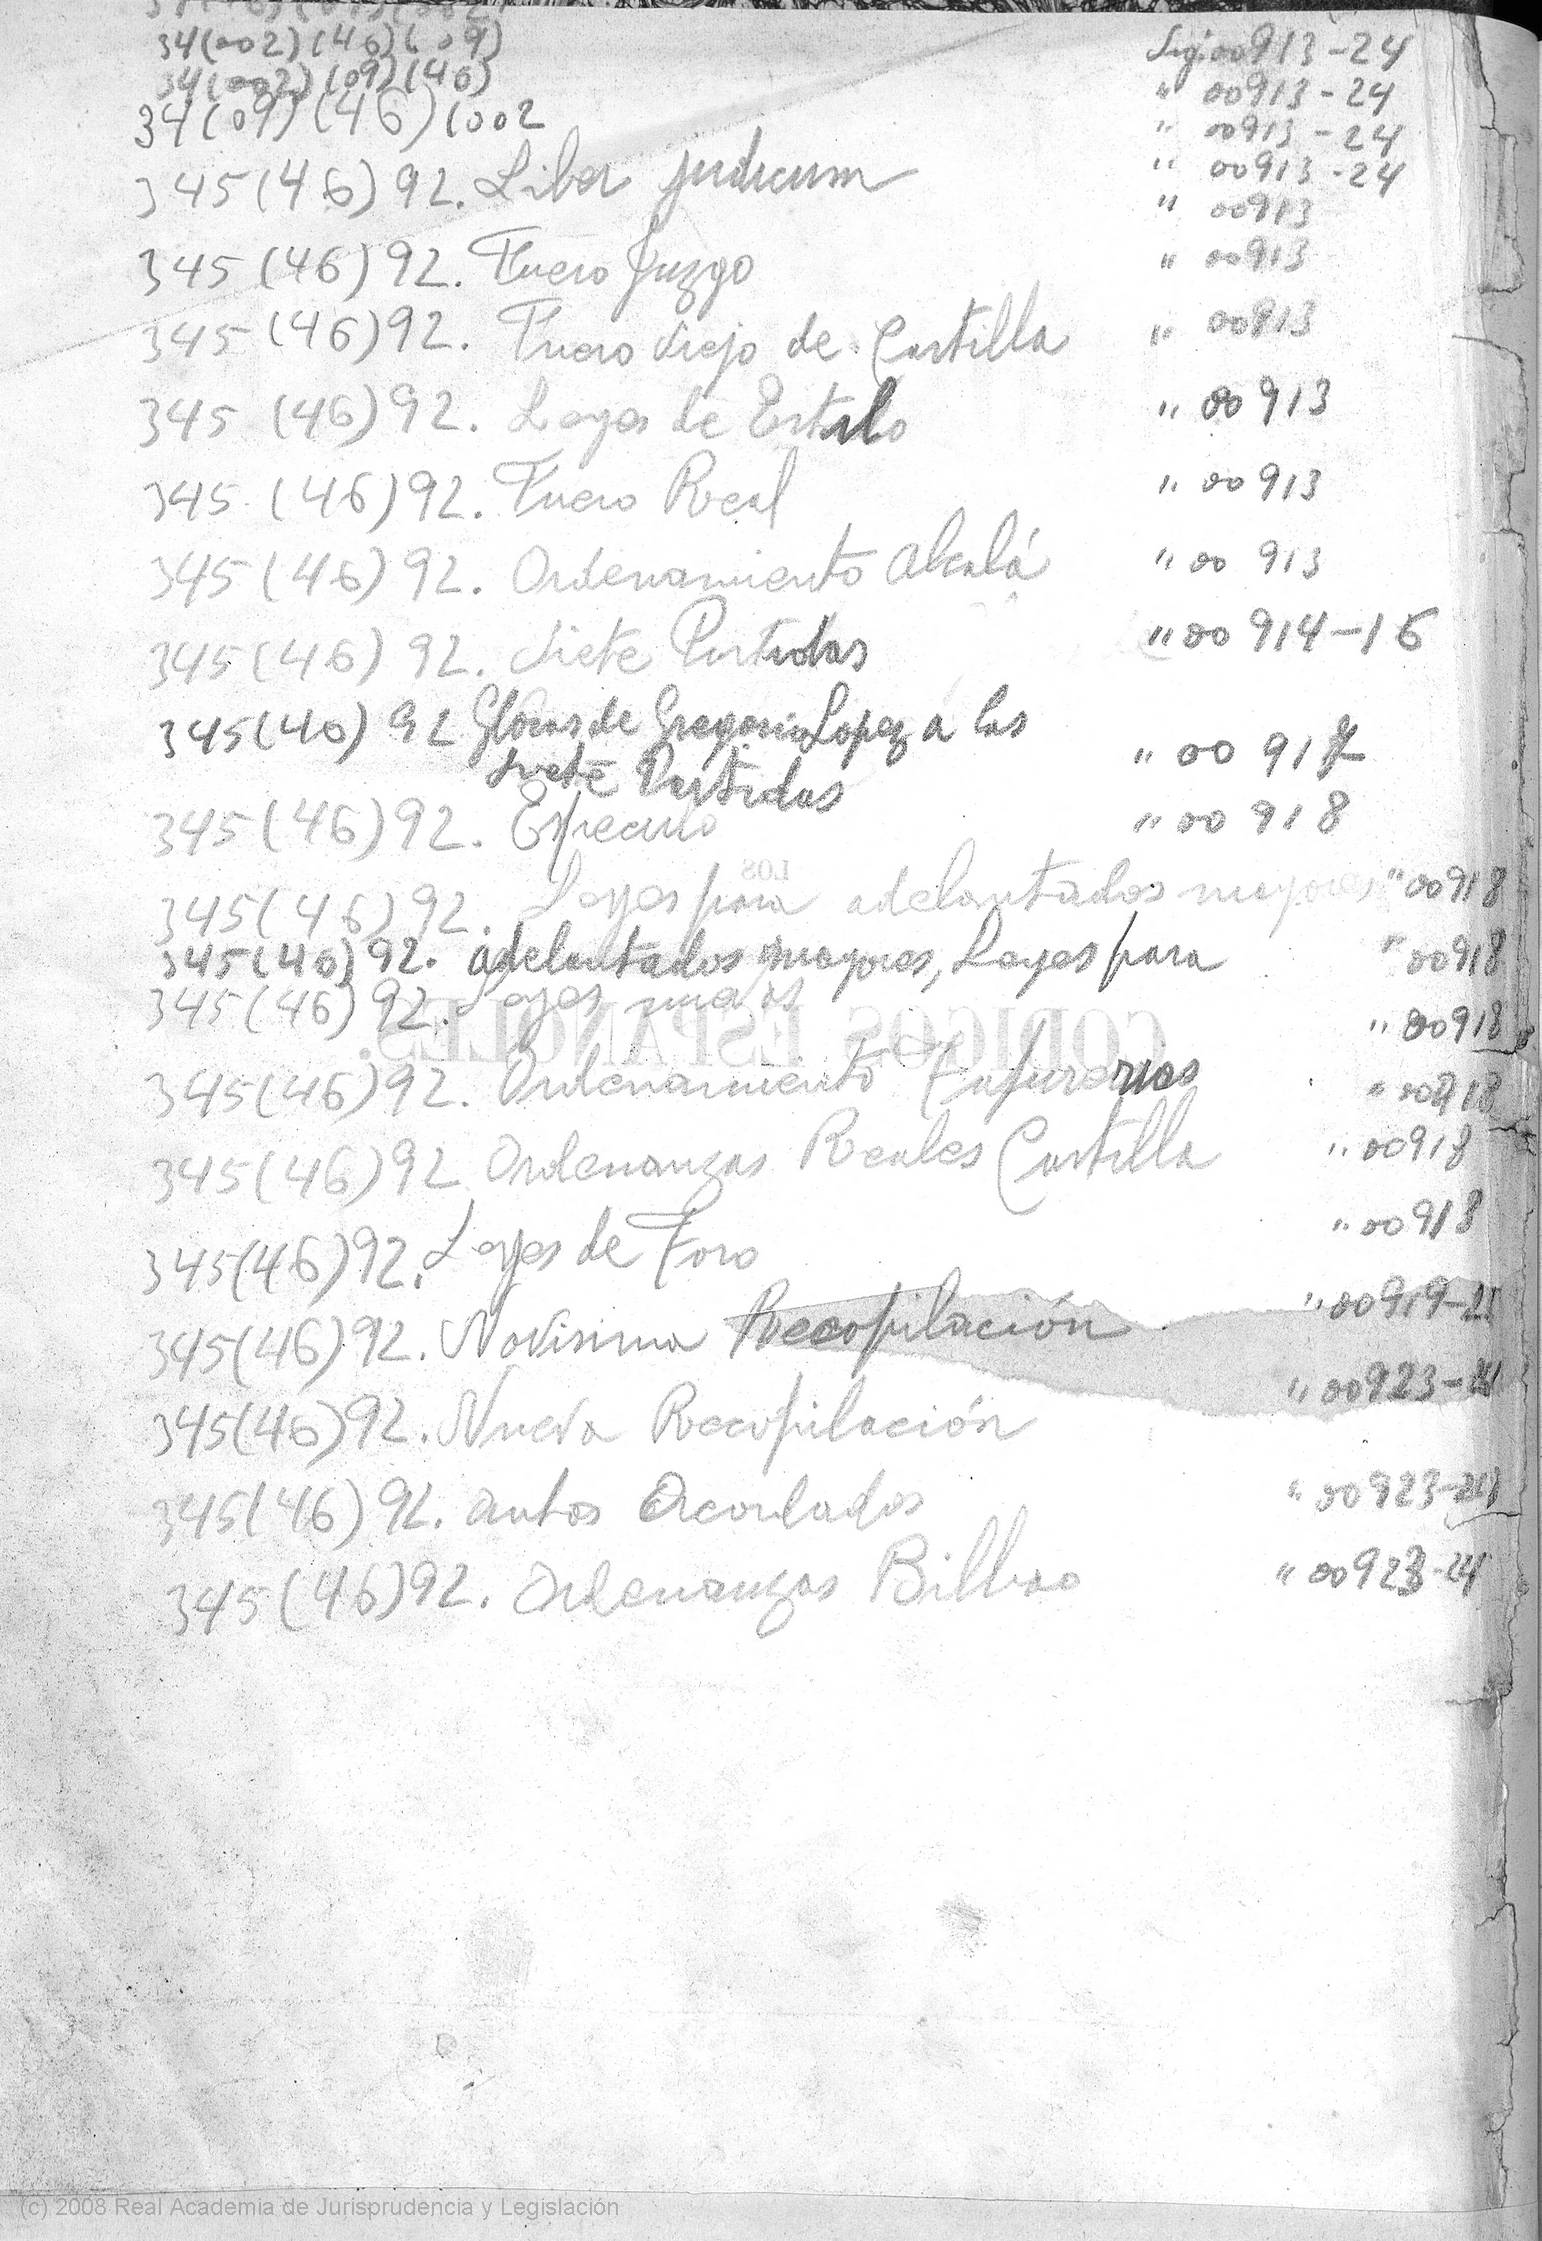 34(002)(46)(09) Sig. 00913-24
34(002)(09)(46) " 00913-24
34(09)(46)(002 " 00913-24
" 00913-24
345(46)92. Liber judicum " 00913
345(46)92. Fuero Juzgo " 00913
345(46)92. Fuero Viejo de Castilla " 00913
345(46)92. Leyes de Estilo " 00913
345(46)92. Fuero Real " 00913
345(46)92. Ordenamiento Alcalá " 00913
345(46)92. Siete Partidas " 00914-16
345(46)92 Glosas de Gregorio Lopez a las " 00917
Siete Partidas
345(46)92. Espéculo " 00918
LOS
345(46)92. Leyes para adelantados mayores " 00918
345(46)92. adelantados mayores, Leyes para " 00918
345(46)92. Leyes nuevas " 00918
CODIGOS ESPAÑOLES.
345(46)92. Ordenamiento Tafurerias " 00918
345(46)92 Ordenanzas Reales Castilla " 00918
345(46)92. Leyes de Toro " 00918
345(46)92. Novísima Recopilación " 00919-22
345(46)92. Nueva Recopilación " 00923-24
345(46)92. Autos Acordados " 00923-24
345(46)92. Ordenanzas Bilbao " 00923-24
(c) 2008 Real Academia de Jurisprudencia y Legislación